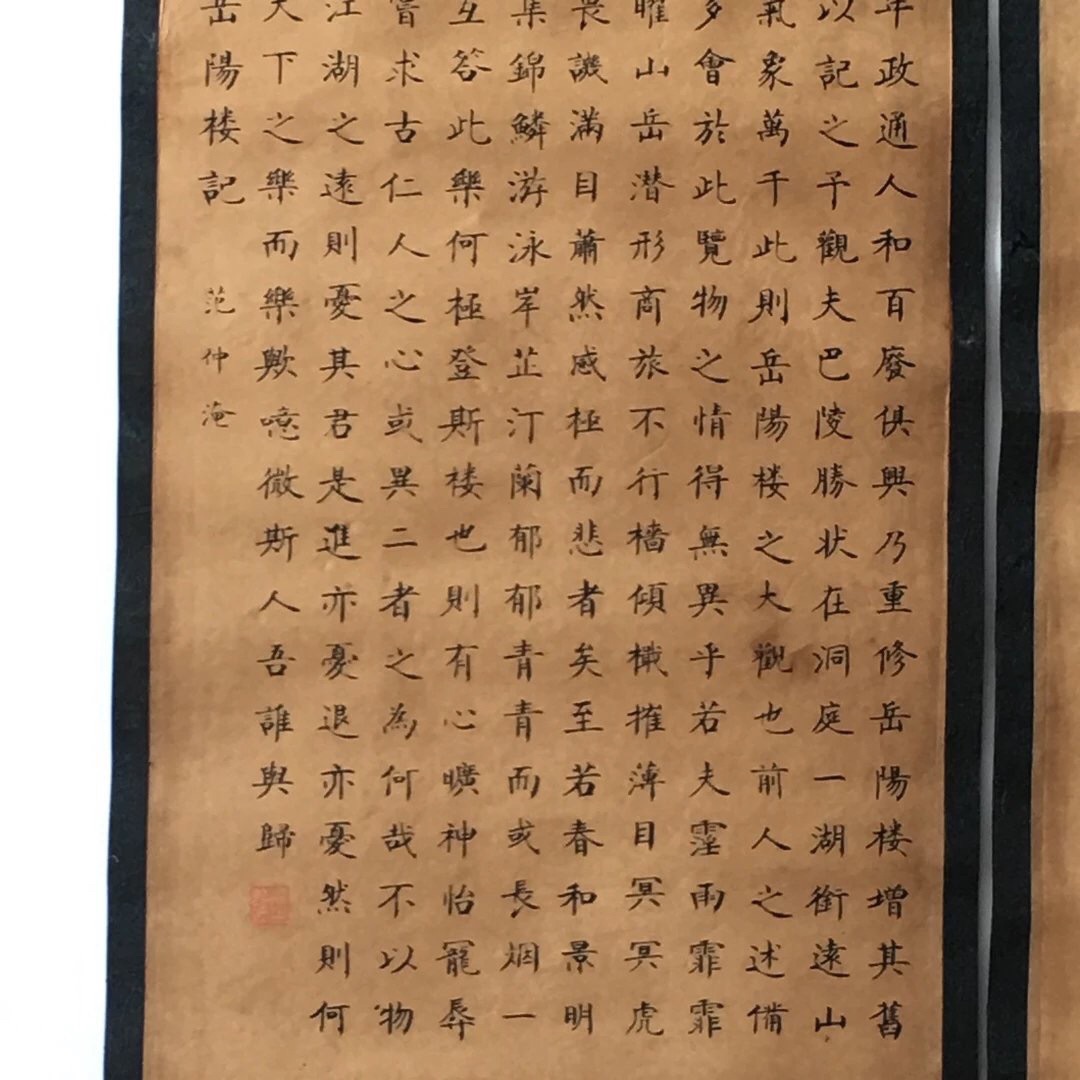 年政通人和百廢俱興乃重修岳陽楼增其舊
以記之予觀夫巴陵勝状在洞庭一湖銜遠山
氣象萬千此則岳陽楼之大觀也前人之述備
多會於此覽物之情得無異乎若夫霪雨霏霏
曜山岳潜形商旅不行檣傾檝摧薄目冥冥虎
畏譏滿目蕭然感極而悲者矣至若春和景明
集錦鱗游泳岸芷汀蘭郁郁青青而或長烟一
互答此樂何極登斯楼也則有心曠神怡寵辱
嘗求古仁人之心或異二者之為何哉不以物
江湖之遠則憂其君是進亦憂退亦憂然則何
天下之樂而樂歟噫微斯人吾誰與歸
岳陽楼記 范仲淹